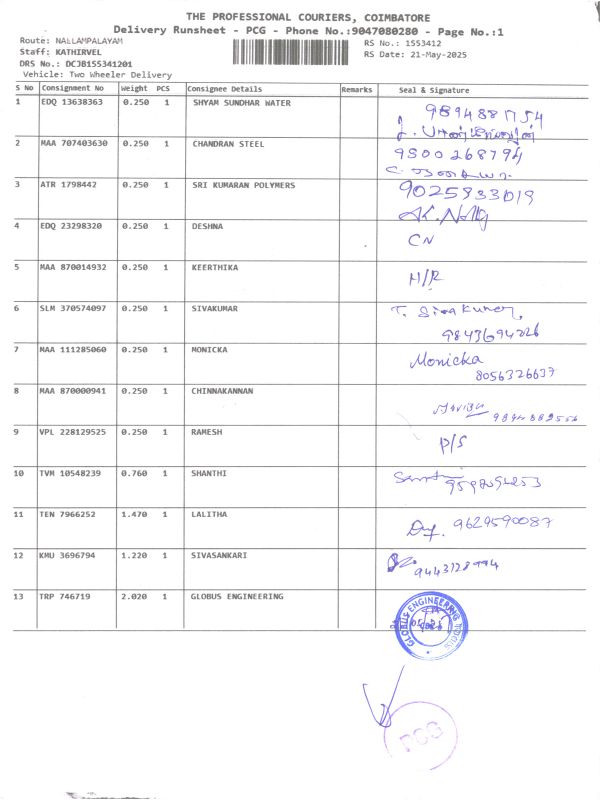 THE PROFESSIONAL COURIERS, COIMBATORE
Delivery Runsheet - PCG - Phone No.:9047080280 - Page No.:1
Route: NALLAMPALAYAM
Staff: KATHIRVEL
DRS No.: DCJB155341201
Vehicle: Two Wheeler Delivery
RS No.: 1553412
RS Date: 21-May-2025
S No Consignment No Weight PCS Consignee Details Remarks Seal & Signature
1 EDQ 13638363 0.250 1 SHYAM SUNDHAR WATER
2 MAA 707403630 0.250 1 CHANDRAN STEEL 9500268794
3 ATR 1798442 0.250 1 SRI KUMARAN POLYMERS 9025833019
4 EDQ 23298320 0.250 1 DESHNA CN
5 MAA 870014932 0.250 1 KEERTHIKA H/R
6 SLM 370574097 0.250 1 SIVAKUMAR T. Sivakumar,
9843694226
7 MAA 111285060 0.250 1 MONICKA Monicka
8056326637
8 MAA 870000941 0.250 1 CHINNAKANNAN
9 VPL 228129525 0.250 1 RAMESH P/S
10 TVM 10548239 0.760 1 SHANTHI
11 TEN 7966252 1.470 1 LALITHA 9629590087
12 KMU 3696794 1.220 1 SIVASANKARI
13 TRP 746719 2.020 1 GLOBUS ENGINEERING
GLOBUS ENGINEERING
PCG